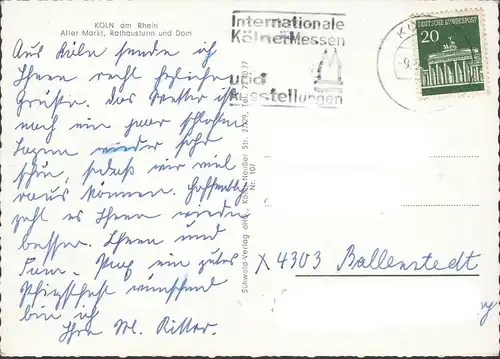 KÖLN am Rhein
Alter Markt, Rathausturm und Dom
Internationale
Kölner Messen
und
Ausstellungen
DEUTSCHE BUNDESPOST
20
Aus Köln sende ich
Ihnen recht herzliche
Grüße. Das Wetter ist
nach ein paar schlechten
Tagen wieder sehr
schön, sodaß wir viel
raus können. Hoffentlich
geht es Ihnen wieder
besser. Ihnen und
Fam. ein gutes
Pfingstfest wünschend
bin ich
Ihre M. Ritter.
Schwold-Verlag oHG., Köln-Nenßer Str. 27/29, Tel. 72 70 77
Nr. 107
X 4303 Ballenstedt